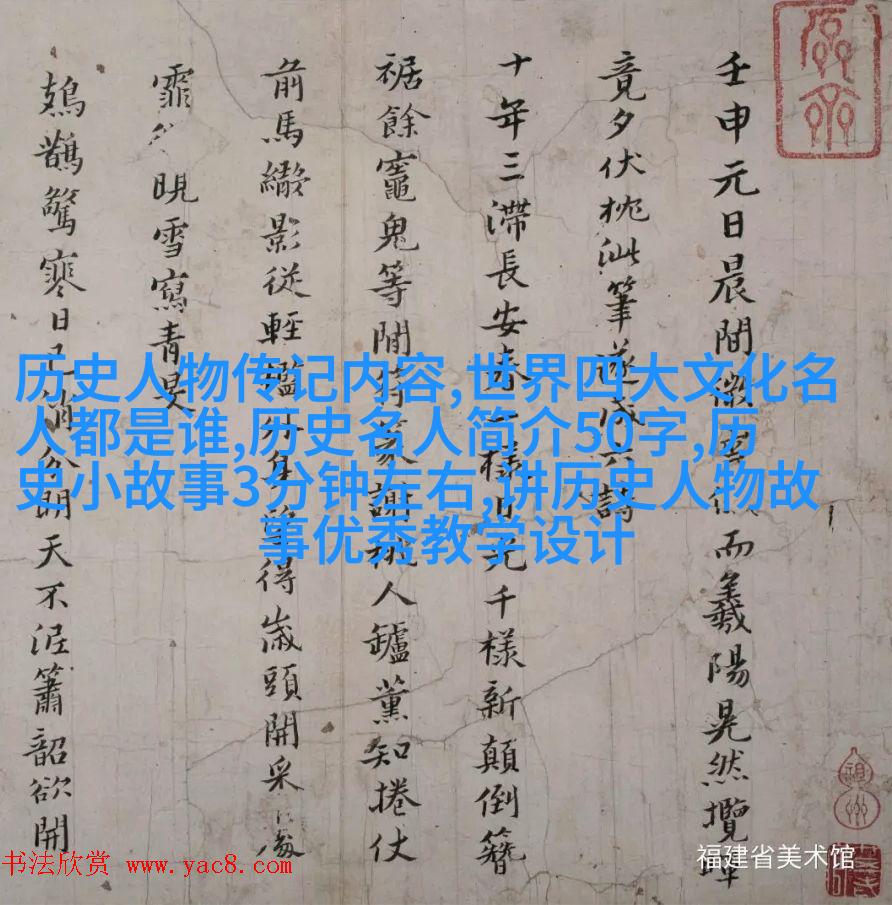 壬申元日晨間微而羲陽晃然攬
竟夕伏枕泚筆遂成六詩
十年三滯長安春一樣日光千樣新顛倒簪
裾餘竈鬼等閒謝人鑪薰知捲仗
前馬影從輕得歲頭開采
霏晛雪寫青旻
鳷鵲驚寒日分明天不泥簫韶欲開
历史人物传记内容,世界四大文化名
人都是谁,历史名人简介50字,历
史小故事3分钟左右,讲历史人物故
事优秀教学设计
书法欣赏 www.yac8.com
福建省美术馆